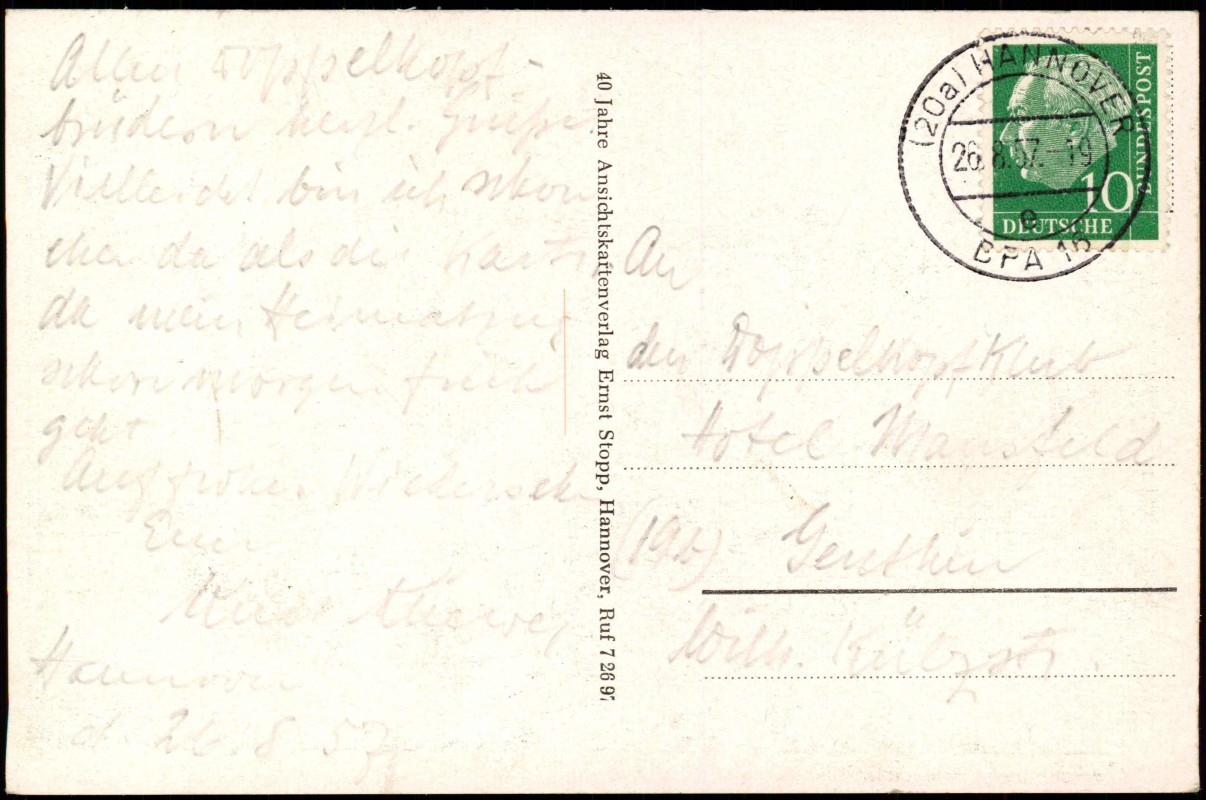 Allen Doppelkopf-
brüdern herzl. Grüße.
Vielleicht bin ich schon
eher da als die Karte,
da mein Heimatzug
schon morgen früh
geht
Auf frohes Wiedersehn
Euer
Hannover
d. 26.8.57
40 Jahre Ansichtskartenverlag Ernst Stopp, Hannover, Ruf 7 26 97
(20a) HANNOVER
26.8.57.-19
e
BPA 16
10
DEUTSCHE
BUNDESPOST
An
den Doppelkopfklub
Hotel Mansfeld
(19b) Genthin
Wilh. Külzstr.